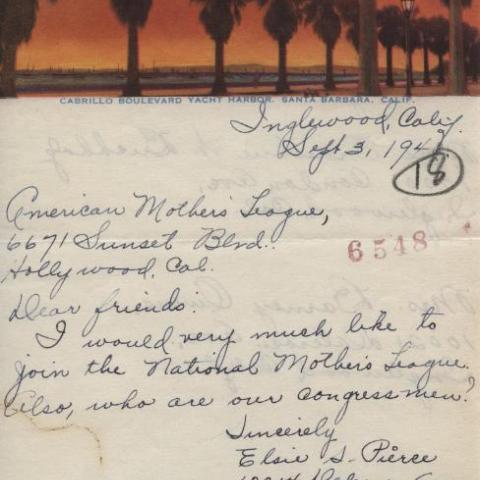 CABRILLO BOULEVARD YACHT HARBOR, SANTA BARBARA, CALIF.
Inglewood, Calif.
Sept 3, 194
18
American Mothers League,
6671 Sunset Blvd.
6548
Hollywood, Cal.
Dear friends:
I would very much like to
join the National Mothers League.
Also, who are our congressmen?
Sincerely
Elsie S. Pierce